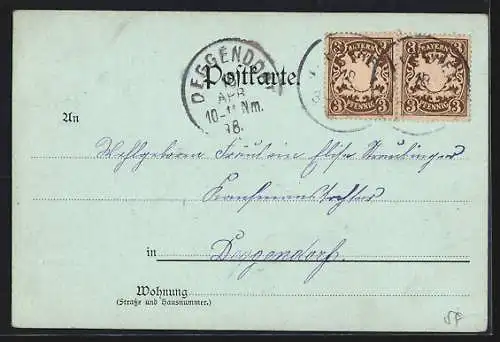 BAYERN BAYERN
3 3 3 3
PFENNIG PFENNIG
DEGGENDORF
Postkarte.
APR
10-11 Nm.
98.
An
Wohlgeboren Fräulein Elise
Kaufmannstochter
in
Deggendorf.
Wohnung
(Straße und Hausnummer.)